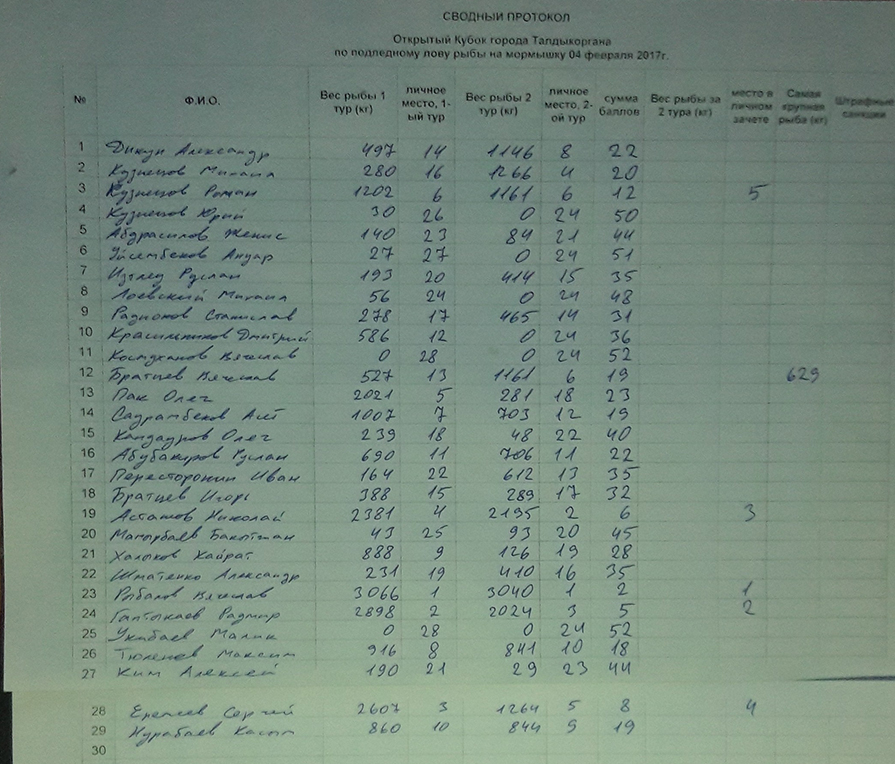 СВОДНЫЙ ПРОТОКОЛ
Открытый Кубок города Талдыкоргана
по подледному лову рыбы на мормышку 04 февраля 2017г.
№ Ф.И.О. Вес рыбы 1 тур (кг) личное место, 1-ый тур Вес рыбы 2 тур (кг) личное место, 2-ой тур сумма баллов Вес рыбы за 2 тура (кг) место в личном зачете Самая крупная рыба (кг) Штрафные санкции
1 Дикун Александр 497 14 1146 8 22
2 Кузнецов Михаил 280 16 1266 4 20
3 Кузнецов Роман 1202 6 1161 6 12 5
4 Кузнецов Юрий 30 26 0 24 50
5 Абдрасилов Женис 140 23 84 21 44
6 Уйсембеков Ануар 27 27 0 24 51
7 Руслан 193 20 414 15 35
8 Лоевский Михаил 56 24 0 24 48
9 Радионов Станислав 278 17 465 14 31
10 Красильников Дмитрий 586 12 0 24 36
11 Костуханов Вячеслав 0 28 0 24 52
12 Братцев Вячеслав 527 13 1161 6 19 629
13 Пак Олег 2021 5 281 18 23
14 Садрамбеков 1007 7 703 12 19
15 Кандауров Олег 239 18 48 22 40
16 Абубакиров Руслан 690 11 706 11 22
17 Пересторонин Иван 164 22 612 13 35
18 Братцев Игорь 388 15 289 17 32
19 Асташов Николай 2381 4 2195 2 6 3
20 43 25 93 20 45
21 Халыков Кайрат 888 9 126 19 28
22 Шматенко Александр 231 19 410 16 35
23 Рыбалов Вячеслав 3066 1 3040 1 2 1
24 2898 2 2024 3 5 2
25 Укибаев Малик 0 28 0 24 52
26 Тюленов Максим 916 8 841 10 18
27 Ким Алексей 190 21 29 23 44
28 Сергей 2607 3 1264 5 8 4
29 Нурабаев 860 10 844 9 19
30